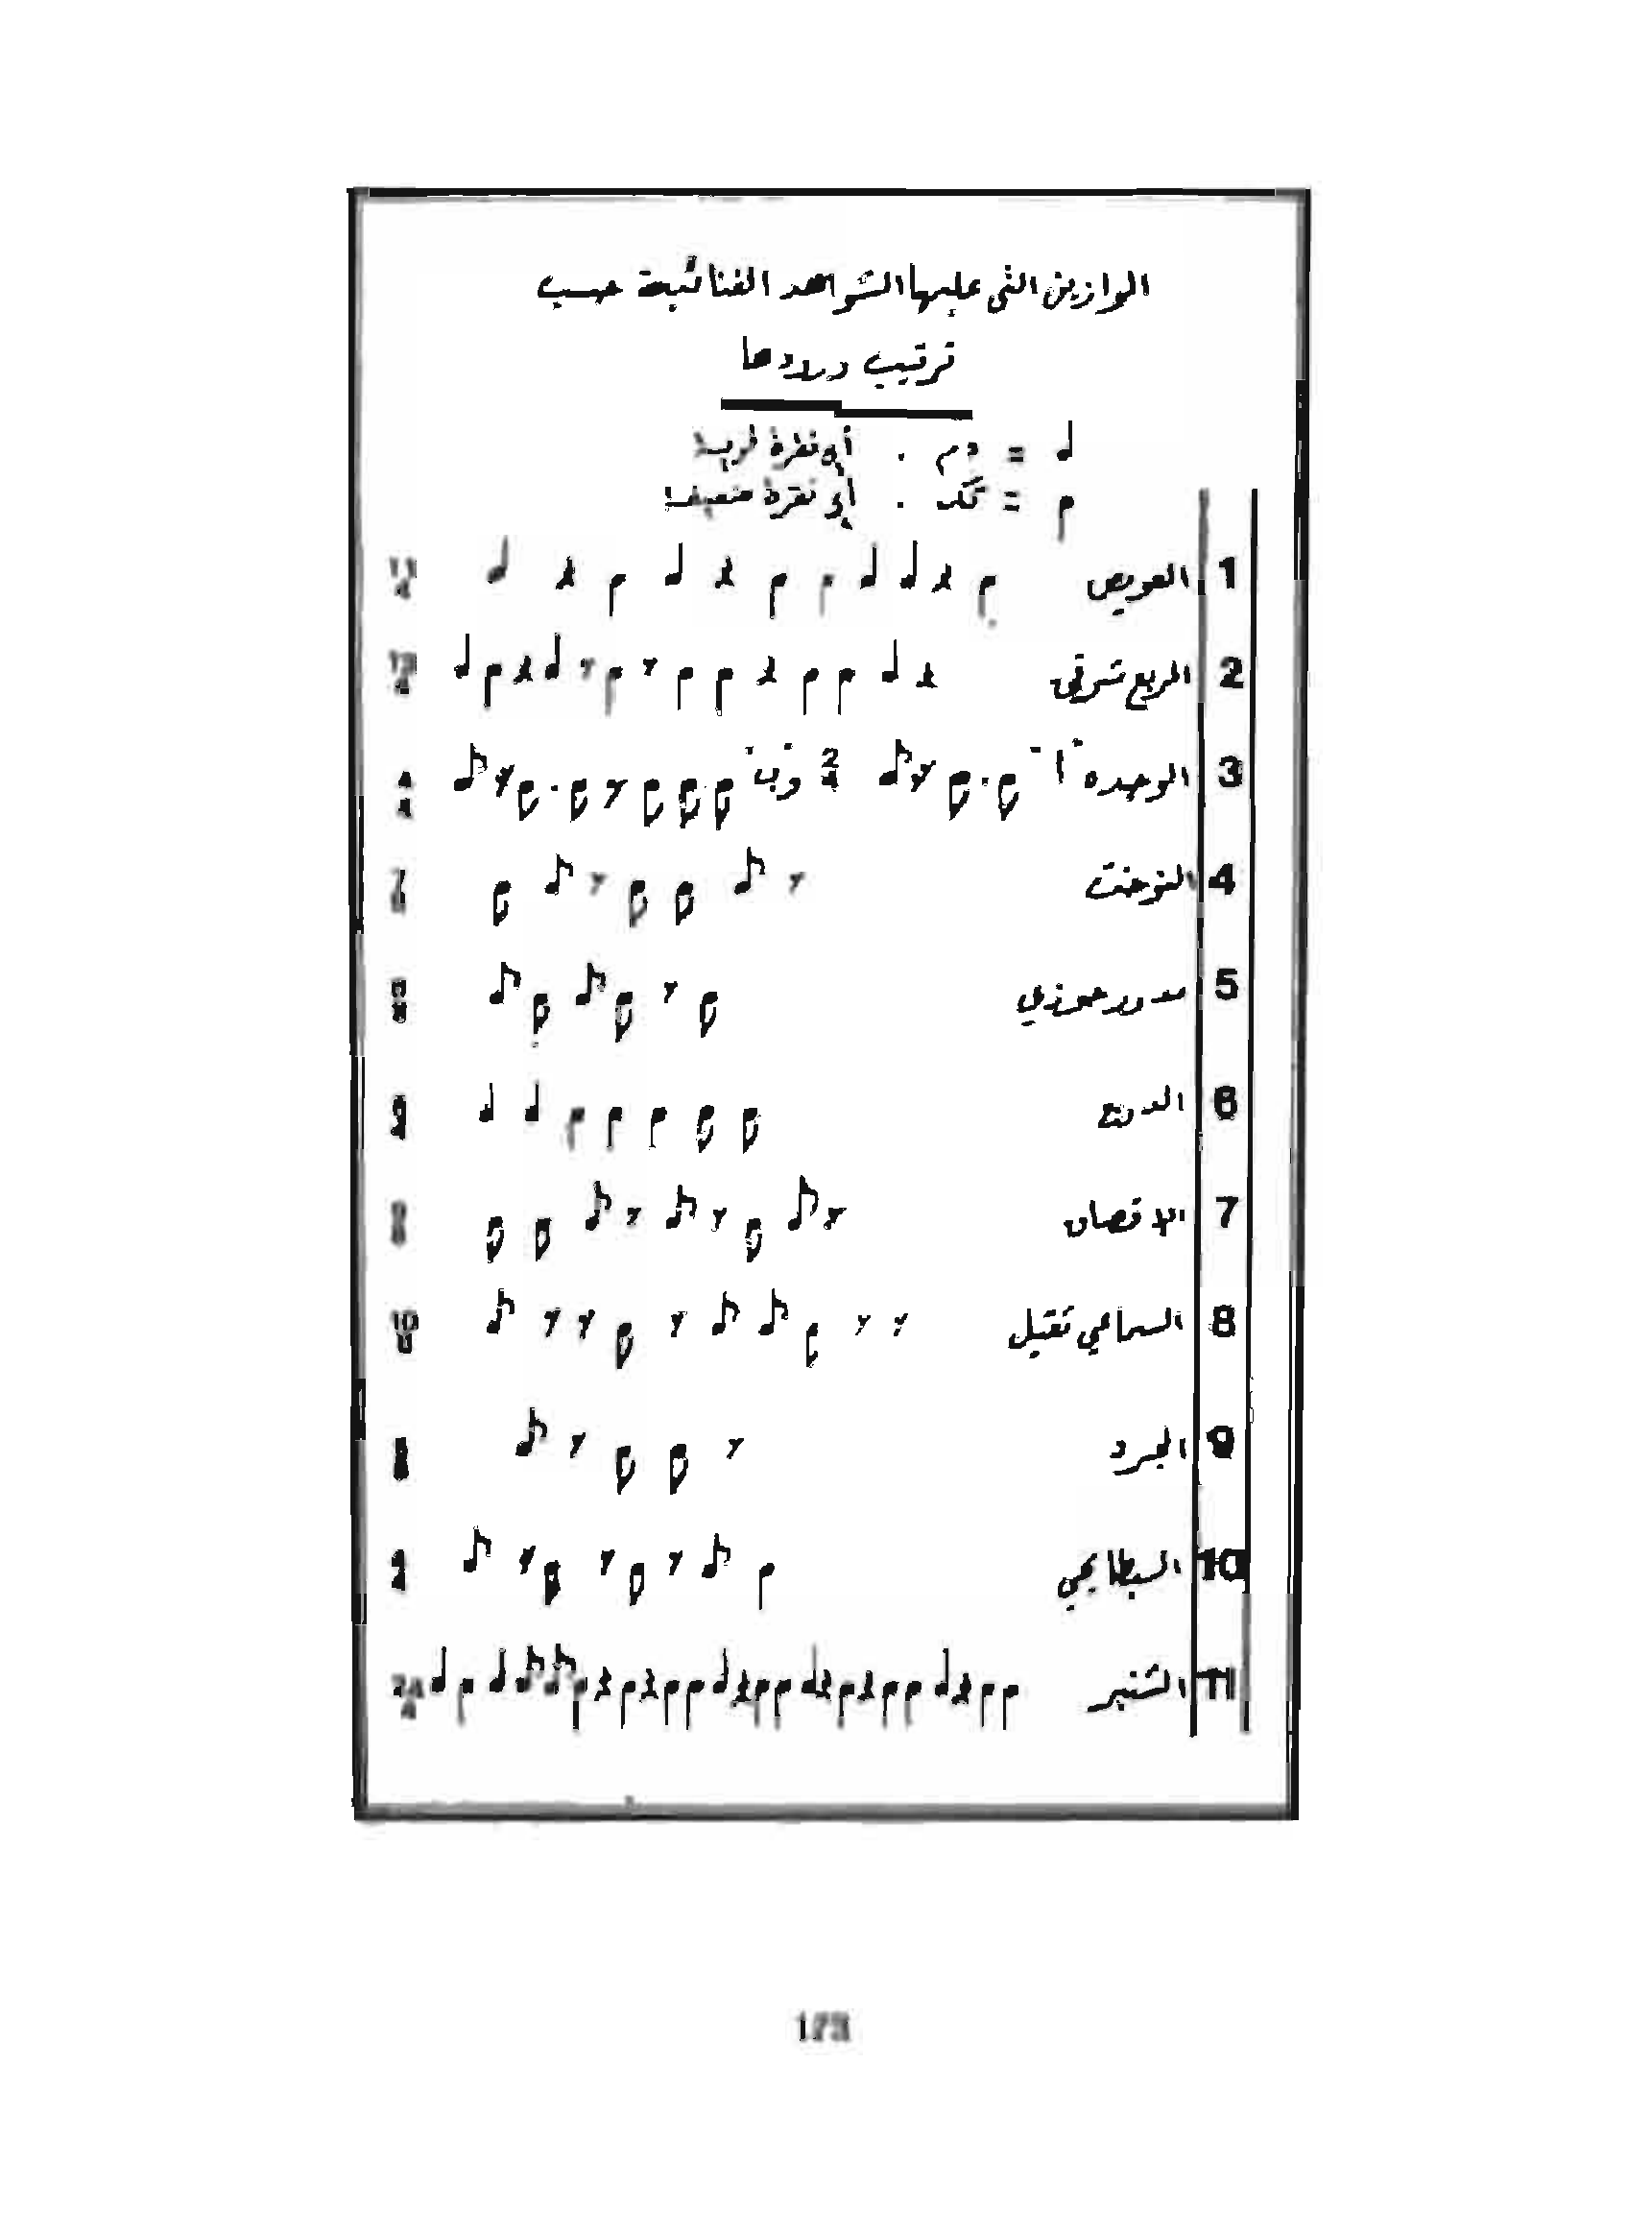 الموازين التي عليها الشواهد الغنائية حسب
ترتيب ورودها
= دم . أي نقرة قوية
= تك . أي نقرة ضعيفة
1 العويص 11/4
2 المربع شرقي 13/4
3 الوحدة "أ" 2/4 و"ب" 4/4
4 النوخت 7/8
5 مدور حوزي
6 الدرج
7 الاقصاق 9/8
8 السماعي ثقيل 10/8
9 البرد
10 البطايحي
11 الشنبر 24/4
173